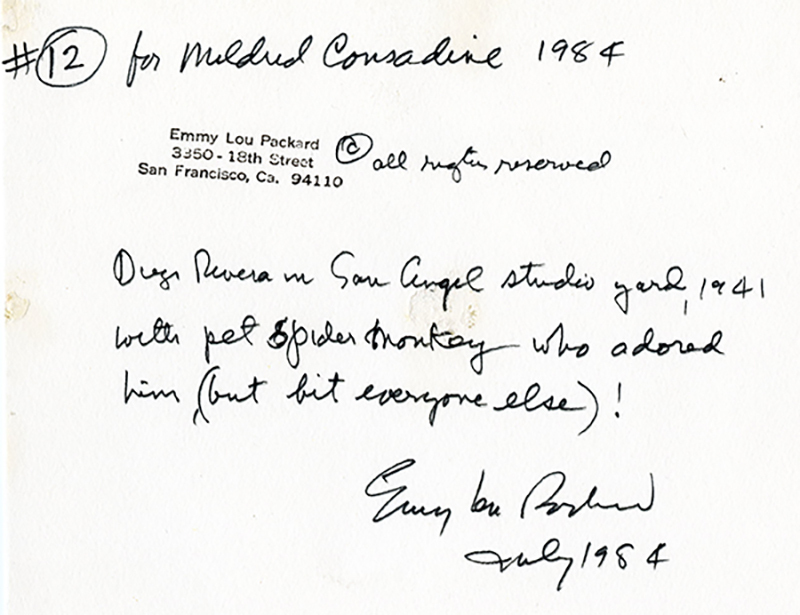 #12 for Mildred Consadine 1984
Emmy Lou Packard
3350 - 18th Street
San Francisco, Ca. 94110
© all rights reserved
Diego Rivera in San Angel studio yard, 1941
with pet spider monkey who adored
him, (but bit everyone else)!
Emmy Lou Packard
July 1984